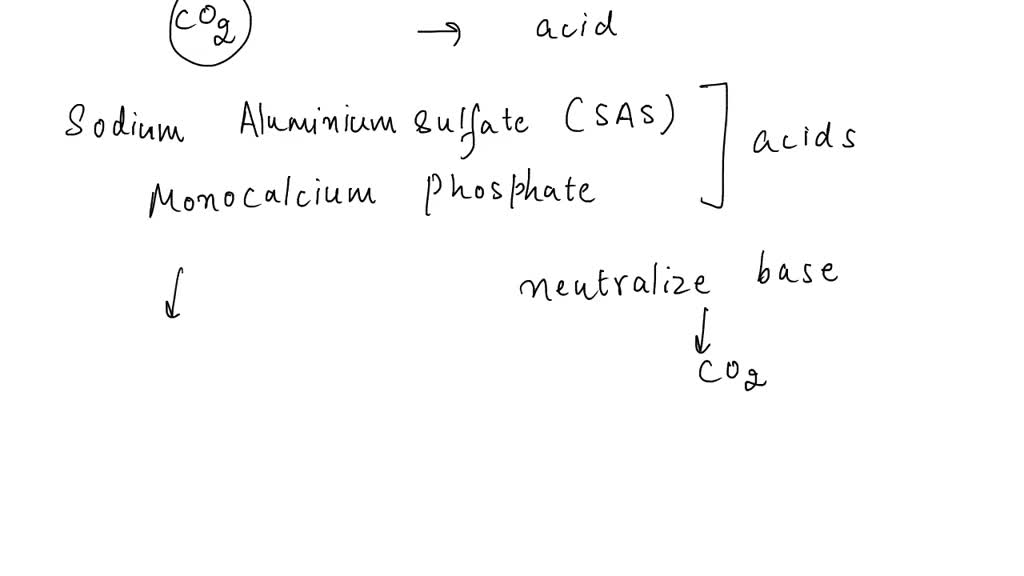 CO2 → acid
Sodium Aluminium sulfate (SAS)
Monocalcium phosphate ] acids
↓ neutralize base
↓
CO2